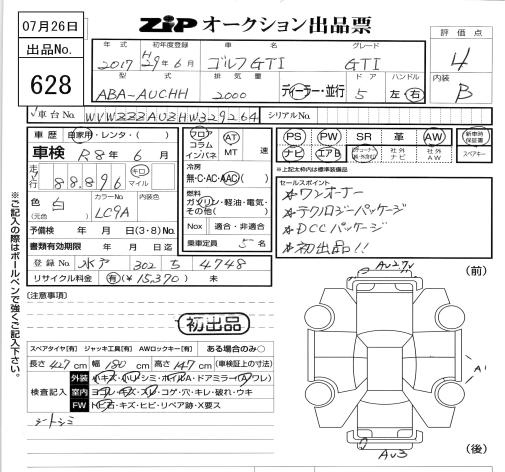 07月26日
ZIP オークション出品票
出品No.
628
年式 初年度登録 車名 グレード
2017 H29年6月 ゴルフGTI GTI
評価点 4
型式 排気量 ドア ハンドル
ABA-AUCHH 2000 ディーラー・並行 5 左・右
内装 B
車台No. WVWZZZAUZHW329264 シリアルNo.
車歴 自家用・レンタ・( )
フロア コラム インパネ AT MT 速
PS PW SR 革 AW
新車時保証書
車検 R8年 6月
冷房
無・C・AC・AAC
ナビ エアB 社外ナビ 社外AW スペアキー
※上記太枠内は標準装備品
走行 88,896 キロ マイル
燃料
ガソリン・軽油・電気・その他( )
セールスポイント
*ワンオーナー
*テクノロジーパッケージ
*DCCパッケージ
*初出品!!
色 白 カラーNo. LC9A 内装色
(元色)
Nox 適合・非適合
予備検 年 月 日(3・8)No.
書類有効期限 年 月 日迄
乗車定員 5名
登録No. 水戸 302 ち 4748
リサイクル料金 有(¥15,370) 未
※ご記入の際はボールペンで強くご記入下さい。
(注意事項)
初出品
(前)
スペアタイヤ[有] ジャッキ工具[有] AWロックキー[有] ある場合のみ○
長さ 427cm 幅 180cm 高さ 147cm (車検証上の寸法)
検査記入
外装
室内 ヨゴレ・キズ・スレ・コゲ・穴・キレ・破れ・ウキ
FW トビ石・キズ・ヒビ・リペア跡・X要ス
シートシミ
A1
AU3
(後)